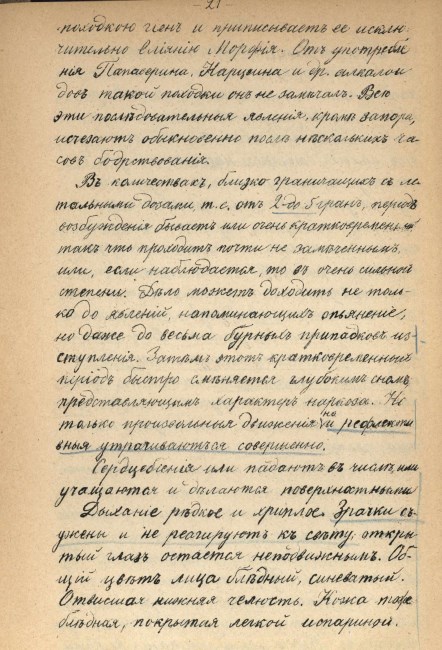 - 21 -
походкою членъ и приписываетъ ее исклю-
чительно вліянію Морфія. Отъ употребле
нія Папаверина, Нарцеина и др. алкалои
довъ такой походки онъ не замѣчалъ. Всѣ
эти послѣдовательныя явленія, кромѣ запора,
исчезаютъ обыкновенно послѣ нѣсколькихъ ча-
совъ бодрствованія.
Въ количествахъ, близко граничащихъ съ ле-
тальными дозами т.е. отъ 2-до 5 гранъ, періодъ
возбужденія бываетъ или очень кратковременный
такъ что проходитъ почти не замѣченнымъ
или, если наблюдается, то въ очень сильной
степени. Дѣло можетъ доходить не толь-
ко до явленій, напоминающихъ опьяненіе,
но даже до весьма бурныхъ припадковъ из-
ступленія. Затѣмъ этотъ кратковременный
періодъ быстро смѣняется глубокимъ сномъ,
представляющимъ характеръ наркоза. Не
только произвольныя движенія, но и рефлекти
вныя утрачиваются совершенно.
Сердцебіенія или падаютъ въ числѣ, или
учащаются и дѣлаются поверхностными
Дыханіе рѣдкое и хриплое. Зрачки съ-
ужены и не реагируютъ къ свѣту; откры-
тый глазъ остается неподвижнымъ. Об-
щій цвѣтъ лица блѣдный, синеватый.
Отвисшая нижняя челюсть. Кожа тоже
блѣдная, покрытая легкой испариной.